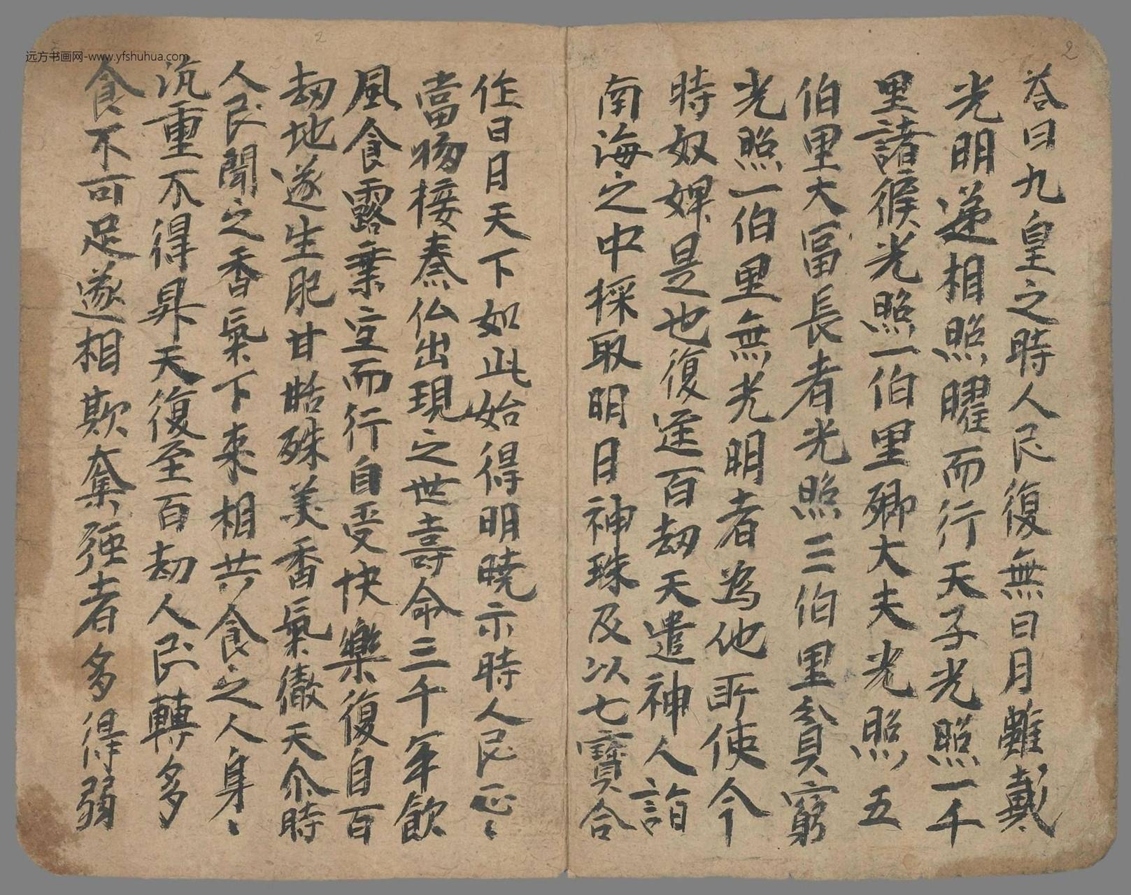 远方书画网-www.yfshuhua.com
2
2
荅曰九皇之時人民復無日月離戴
光明递相照曜而行天子光照一千
里諸候光照一伯里卿大夫光照五
伯里大冨長者光照三伯里貪窮
光照一伯里無光明者為他所使今
時奴婢是也復逕百劫天遣神人詣
南海之中採取明月神珠及以七寶合
作日月天下如此始得明曉尒時人民正〻
當楊接泰仏出現之世壽命三千年飲
風食露乗空而行自受快樂復自百
劫地遂生肥甘甛殊美香氣徹天尒時
人民聞之香氣下来相共食之人身〻
沉重不得昇天復至百劫人民轉多
食不可足遂相欺奪强者多得弱